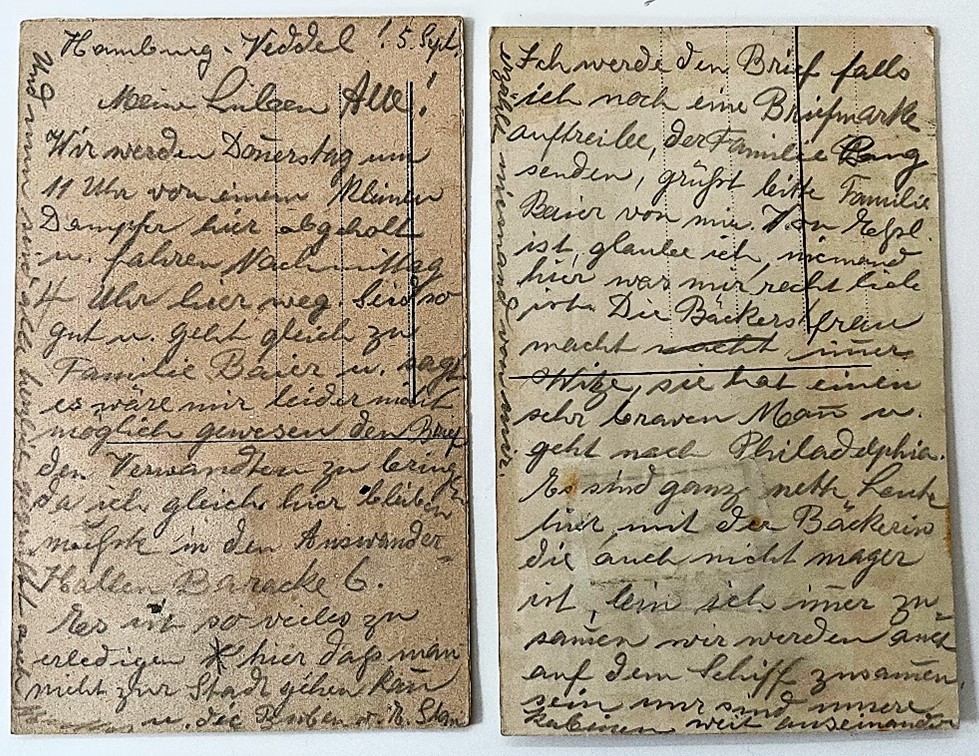 Hamburg-Veddel 15. Sept.
Meine Lieben All!
Wir werden Don̄erstag um
11 Uhr von einem kleinen
Dampfer hier abgeholt
u. fahren Nachmittag
4 Uhr hier weg. Seid so
gut u. geht gleich zu
Familie Baier u. sagt
es wäre mir leider nicht
möglich gewesen den Brief
den Verwandten zu bring
da ich gleich hier bleiben
mußte in den Auswander-
Hallen Baracke 6.
Es ist so vieles zu
erledigen hier daß man
nicht zur Stadt gehen kan̄
u. die
Und nun
Ich werde den Brief falls
ich noch eine Briefmarke
auftreibe, der Familie
senden, grüßt bitte Familie
Baier von mir. Von
ist, glaube ich, niemand
hier war mir recht lieb
ist. Die Bäckersfrau
macht macht im̄er
Witze, sie hat einen
sehr braven Man̄ u.
geht nach Philadelphia.
Es sind ganz nette Leute
hier mit der Bäckerin
die auch nicht mager
ist, bin ich im̄er zu-
sam̄en wir werden auch
auf dem Schiff zusam̄en
sein nur sind unsere
Kabinen weit auseinander
niemand von mir.